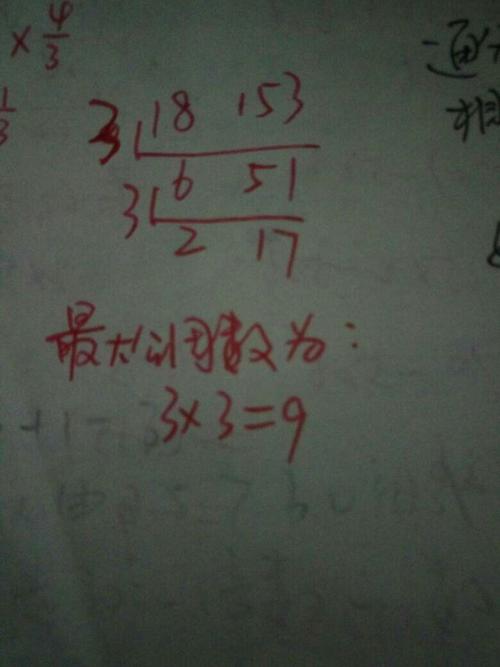 × 4/3
1/3
3 18 153
3 6 51
2 17
最大公因数为:
3×3=9